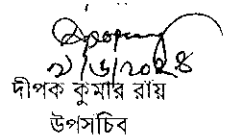 ৯/৬/২০২৪
দীপক কুমার রায়
উপসচিব